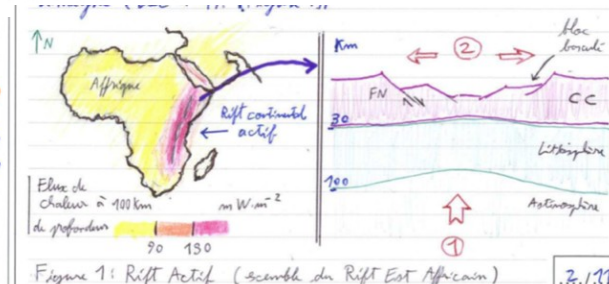 N
Afrique
Rift continental
actif
Flux de
chaleur à 100km
de profondeur
mW.m⁻²
90 130
Km
②
bloc
basculé
FN
CC
30
Lithosphère
100
Asthénosphère
①
Figure 1: Rift Actif (exemple du Rift Est Africain)